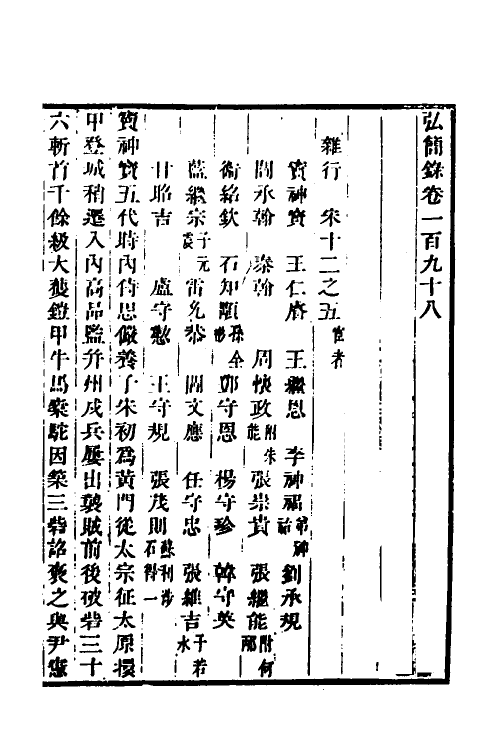 弘簡錄卷一百九十八
雜行 宋十二之五宦者
竇神寶 王仁睿 王繼恩 李神福弟神祐 劉承規
閻承翰 秦翰 周懷政附朱能 張崇貴 張繼能附何
衛紹欽 石知顒孫全彬 鄧守恩 楊守珍 韓守英
藍繼宗子元震 雷允恭 閻文應 任守忠 張維吉子若水
甘昭吉 盧守懃 王守規 張茂則蘇利涉石得一
竇神寶五代時內侍思儼養子宋初為黃門從太宗征太原擐
甲登城稍遷入內高品監幷州戍兵屢出襲賊前後破砦三十
六斬首千餘級大獲鎧甲牛馬橐駝因築三砦詔褒之與尹憲